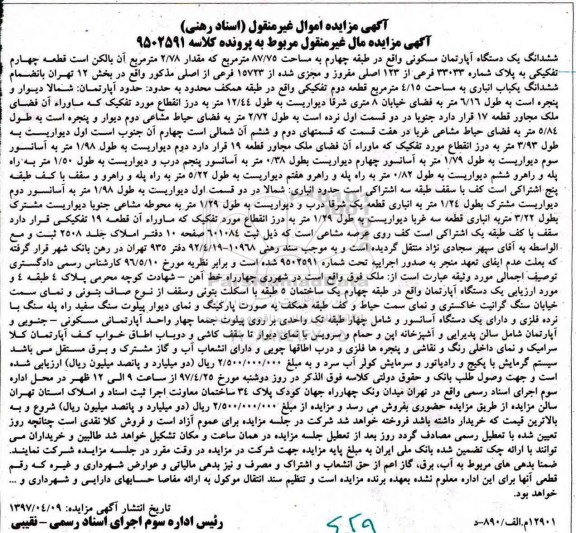 آگهی مزایده اموال غیرمنقول (اسناد رهنی)
آگهی مزایده مال غیرمنقول مربوط به پرونده کلاسه ۹۵۰۲۵۹۱
ششدانگ یک دستگاه آپارتمان مسکونی واقع در طبقه چهارم به مساحت ۸۷/۷۵ مترمربع که مقدار ۲/۷۸ مترمربع آن بالکن است قطعه چهارم
تفکیکی به پلاک شماره ۳۳۰۳۳ فرعی از ۱۲۳ اصلی مفروز و مجزی شده از ۱۵۷۲۳ فرعی از اصلی مذکور واقع در بخش ۱۲ تهران بانضمام
ششدانگ یکباب انباری به مساحت ۴/۱۵ مترمربع قطعه دوم تفکیکی واقع در طبقه همکف محدود به حدود: حدود آپارتمان: شمالا دیوار و
پنجره است به طول ۶/۱۶ متر به فضای خیابان ۸ متری شرقا دیواریست به طول ۱۲/۴۴ متر به درز انقطاع مورد تفکیک که ماوراء آن فضای
ملک مجاور قطعه ۱۷ قرار دارد جنوبا در دو قسمت اول نرده است به طول ۲/۷۲ متر به فضای حیاط مشاعی دوم دیوار و پنجره است به طول
۵/۸۴ متر به فضای حیاط مشاعی غربا در هفت قسمت که قسمتهای دوم و ششم آن شمالی است چهارم آن جنوب است اول دیواریست به
طول ۳/۹۳ متر به درز انقطاع مورد تفکیک که ماوراء آن فضای ملک مجاور قطعه ۱۹ قرار دارد دوم دیواریست به طول ۱/۹۸ متر به آسانسور
سوم دیواریست به طول ۱/۷۹ متر به آسانسور چهارم دیواریست بطول ۰/۳۸ متر به آسانسور پنجم درب و دیواریست به طول ۱/۵۰ متر به راه
پله و راهرو ششم دیواریست به طول ۰/۸۲ متر به راه پله و راهرو هفتم دیواریست به طول ۵/۲۲ متر به راه پله و راهرو و سقف با کف طبقه
پنج اشتراکی است کف با سقف طبقه سه اشتراکی است حدود انباری: شمالا در دو قسمت اول دیواریست به طول ۱/۹۸ متر به آسانسور دوم
دیواریست مشترک بطول ۱/۲۴ متر به انباری قطعه یک شرقا درب و دیواریست به طول ۱/۲۹ متر به محوطه مشاعی جنوبا دیواریست مشترک
بطول ۳/۲۲ متربه انباری قطعه سه غربا دیواریست به طول ۱/۲۹ متر به درز انقطاع مورد تفکیک که ماوراء آن قطعه ۱۹ تفکیکی قرار دارد
سقف با کف طبقه یک اشتراکی است کف روی عرصه مشاعی است که ذیل ثبت ۶۰۱۰۸۴ صفحه ۱۰ دفتر املاک جلد ۲۵۰۸ ثبت و مع
الواسطه به آقای سپهر سجادی نژاد منتقل گردیده است و به موجب سند رهنی ۱۰۹۶۸-۹۲/۴/۱۹ دفتر ۹۳۵ تهران در رهن بانک شهر قرار گرفته
که بعلت عدم ایفای تعهد منجر به صدور اجراییه تحت شماره ۹۵۰۲۵۹۱ شده است و برابر نظریه مورخ ۹۶/۵/۱۰ کارشناس رسمی دادگستری
توصیف اجمالی مورد وثیقه عبارت است از: ملک فوق واقع است در شهرری چهارراه خط آهن – شهادت کوچه محرمی پلاک ۴ طبقه ۴ و
مورد ارزیابی یک دستگاه آپارتمان واقع در طبقه چهارم یک ساختمان ۵ طبقه با اسکلت بتونی وسقف از نوع صاف بتونی و نمای سمت
خیابان سنگ گرانیت خاکستری و نمای سمت حیاط و کف طبقه همکف به صورت پارکینگ و نمای دیوار پیلوت سنگ سفید راه پله سنگ با
نرده فلزی و دارای یک دستگاه آسانسور و شامل چهار طبقه تک واحدی بر روی پیلوت جمعا چهار واحد آپارتمانی مسکونی – جنوبی و
آپارتمان شامل سالن پذیرایی و آشپزخانه اپن و حمام و سرویس با نمای دیوار تا سقف کاشی و دوباب اطاق خواب کف آپارتمان کلا
سرامیک و نمای داخلی رنگ و نقاشی و پنجره ها فلزی و درب اطاقها چوبی و دارای انشعاب آب و گاز مشترک و برق مستقل می باشد
سیستم گرمایش با پکیج و رادیاتور و سرمایش کولر آب سرد و به مبلغ ۲/۵۰۰/۰۰۰/۰۰۰ ریال (دو میلیارد و پانصد میلیون ریال) ارزیابی شده
است و جهت وصول طلب بانک و حقوق دولتی کلاسه فوق الذکر در روز دوشنبه مورخ ۹۷/۴/۲۵ از ساعت ۹ الی ۱۲ ظهر در محل اداره
سوم اجرای اسناد رسمی واقع در تهران میدان ونک چهارراه جهان کودک پلاک ۳۴ ساختمان معاونت اجرا ثبت اسناد و املاک استان تهران
سالن مزایده از طریق مزایده حضوری بفروش می رسد و مزایده از مبلغ ۲/۵۰۰/۰۰۰/۰۰۰ ریال (دو میلیارد و پانصد میلیون ریال) شروع و به
بالاترین قیمت که خریدار داشته باشد فروخته خواهد شد شرکت در جلسه مزایده برای عموم آزاد است و فروش کلا نقدی است چنانچه روز
تعیین شده با تعطیل رسمی مصادف گردد روز بعد از تعطیل جلسه مزایده در همان ساعت و مکان تشکیل خواهد شد طالبین و خریداران می
توانند با ارائه چک تضمین شده بانک ملی ایران به مبلغ پایه مزایده جهت شرکت در مزایده در وقت مقرر در جلسه مزایده شرکت نمایند.
ضمنا بدهی های مربوط به آب، برق، گاز اعم از حق انشعاب و اشتراک و مصرف و نیز بدهی مالیاتی و عوارض شهرداری و غیره که رقم
قطعی آنها برای این اداره معلوم نشده بعهده برنده مزایده است و تنظیم سند انتقال موکول به ارائه مفاصا حسابهای دارایی و شهرداری و ...
خواهد بود.
تاریخ انتشار آگهی مزایده: ۱۳۹۷/۰۴/۰۹
۱۲۹۰۱م.الف/۸۹۰-د
رئیس اداره سوم اجرای اسناد رسمی – نقیبی